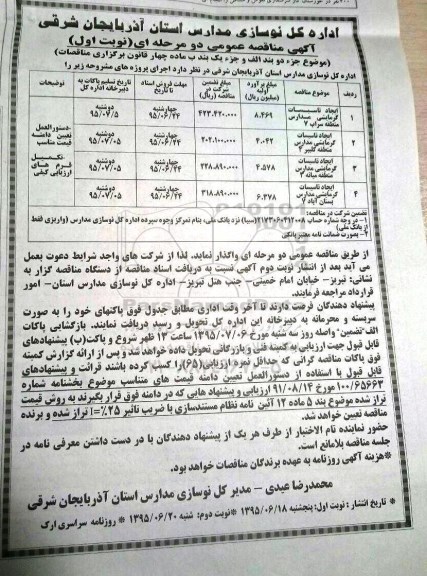 اداره کل نوسازی مدارس استان آذربایجان شرقی
آگهی مناقصه عمومی دو مرحله ای(نوبت اول)
(موضوع جزء دو بند الف و جزء یک بند ب ماده چهار قانون برگزاری مناقصات)
اداره کل نوسازی مدارس استان آذربایجان شرقی در نظر دارد اجرای پروژه های مشروحه زیر را
ردیف موضوع مناقصه مبلغ برآورد اولیه (میلیون ریال) مبلغ تضمین شرکت در مناقصه (ریال) مهلت فروش اسناد تا تاریخ تاریخ تسلیم پاکات به دبیرخانه اداره کل توضیحات
۱ ایجاد تاسیسات گرمایشی مدارس منطقه سراب ۷ ۸.۴۶۹ ۴۲۳.۴۲۰.۰۰۰ چهارشنبه ۹۵/۰۶/۲۴ دوشنبه ۹۵/۰۷/۵
۲ ایجاد تاسیسات گرمایشی مدارس منطقه کلیبر ۴ ۴.۰۴۲ ۲۰۲.۱۰۰.۰۰۰ چهارشنبه ۹۵/۰۶/۲۴ دوشنبه ۹۵/۰۷/۰۵
۳ ایجاد تاسیسات گرمایشی مدارس منطقه میانه ۳ ۴.۵۷۸ ۲۲۸.۸۹۰.۰۰۰ چهارشنبه ۹۵/۰۶/۲۴ دوشنبه ۹۵/۰۷/۰۵
۴ ایجاد تاسیسات گرمایشی مدارس بستان آباد ۷ ۶.۳۷۸ ۳۱۸.۸۹۰.۰۰۰ چهارشنبه ۹۵/۰۶/۲۴ دوشنبه ۹۵/۰۷/۰۵
-دستورالعمل تعیین دامنه قیمت مناسب
-تکمیل فرم های ارزیابی کیفی
تضمین شرکت در مناقصه:
۱- در وجه شماره حساب ۲۱۷۳۰۶۰۴۹۲۰۰۸ (سیبا) نزد بانک ملی، بنام تمرکز وجوه سپرده اداره کل نوسازی مدارس (واریزی فقط از بانک ملی)
۲- بصورت ضمانت نامه معتبر بانکی
از طریق مناقصه عمومی دو مرحله ای واگذار نماید. لذا از شرکت های واجد شرایط دعوت بعمل
می آید بعد از انتشار نوبت دوم آگهی نسبت به دریافت اسناد مناقصه از دستگاه مناقصه گزار به
نشانی: تبریز- خیابان امام خمینی- جنب هتل تبریز- اداره کل نوسازی مدارس استان- امور
قرارداد مراجعه فرمایند.
پیشنهاد دهندگان فرصت دارند تا آخر وقت اداری مطابق جدول فوق پاکتهای خود را به صورت
سربسته و محرمانه به دبیرخانه این اداره کل تحویل و رسید دریافت نمایند. بازگشایی پاکات
الف-تضمین- واصله روز سه شنبه مورخ ۱۳۹۵/۰۷/۰۶ ساعت ۱۳ ظهر شروع و پاکت(ب) پیشنهادهای
قابل قبول جهت ارزیابی به کمیته فنی و بازرگانی تحویل داده خواهد شد و پس از ارائه گزارش کمیته
فوق پاکات مناقصه گرانی که حداقل نمره ارزیابی(۶۵)را کسب کرده باشند قرائت و پیشنهادهای
قابل قبول با استفاده از دستورالعمل تعیین دامنه قیمت های متناسب موضوع بخشنامه شماره
۱۰۰/۶۵۶۶۳ مورخ ۹۱/۰۸/۱۴ ارزیابی و پیشنهاد هایی که در دامنه فوق قرار بگیرند به روش قیمت
تراز شده موضوع بند ۵ ماده ۱۲ آئین نامه نظام مستندسازی با ضریب تاثیر ۲۵٪=i تراز شده و برنده
مناقصه تعیین خواهد شد.
حضور نماینده تام الاختیار از طرف هر یک از پیشنهاد دهندگان با در دست داشتن معرفی نامه در
جلسه مناقصه بلامانع است.
*هزینه آگهی روزنامه به عهده برندگان مناقصات خواهد بود.
محمدرضا عبدی - مدیر کل نوسازی مدارس استان آذربایجان شرقی
* تاریخ انتشار : نوبت اول: پنجشنبه ۱۳۹۵/۰۶/۱۸ *نوبت دوم: شنبه ۱۳۹۵/۰۶/۲۰ * روزنامه سراسری ارک